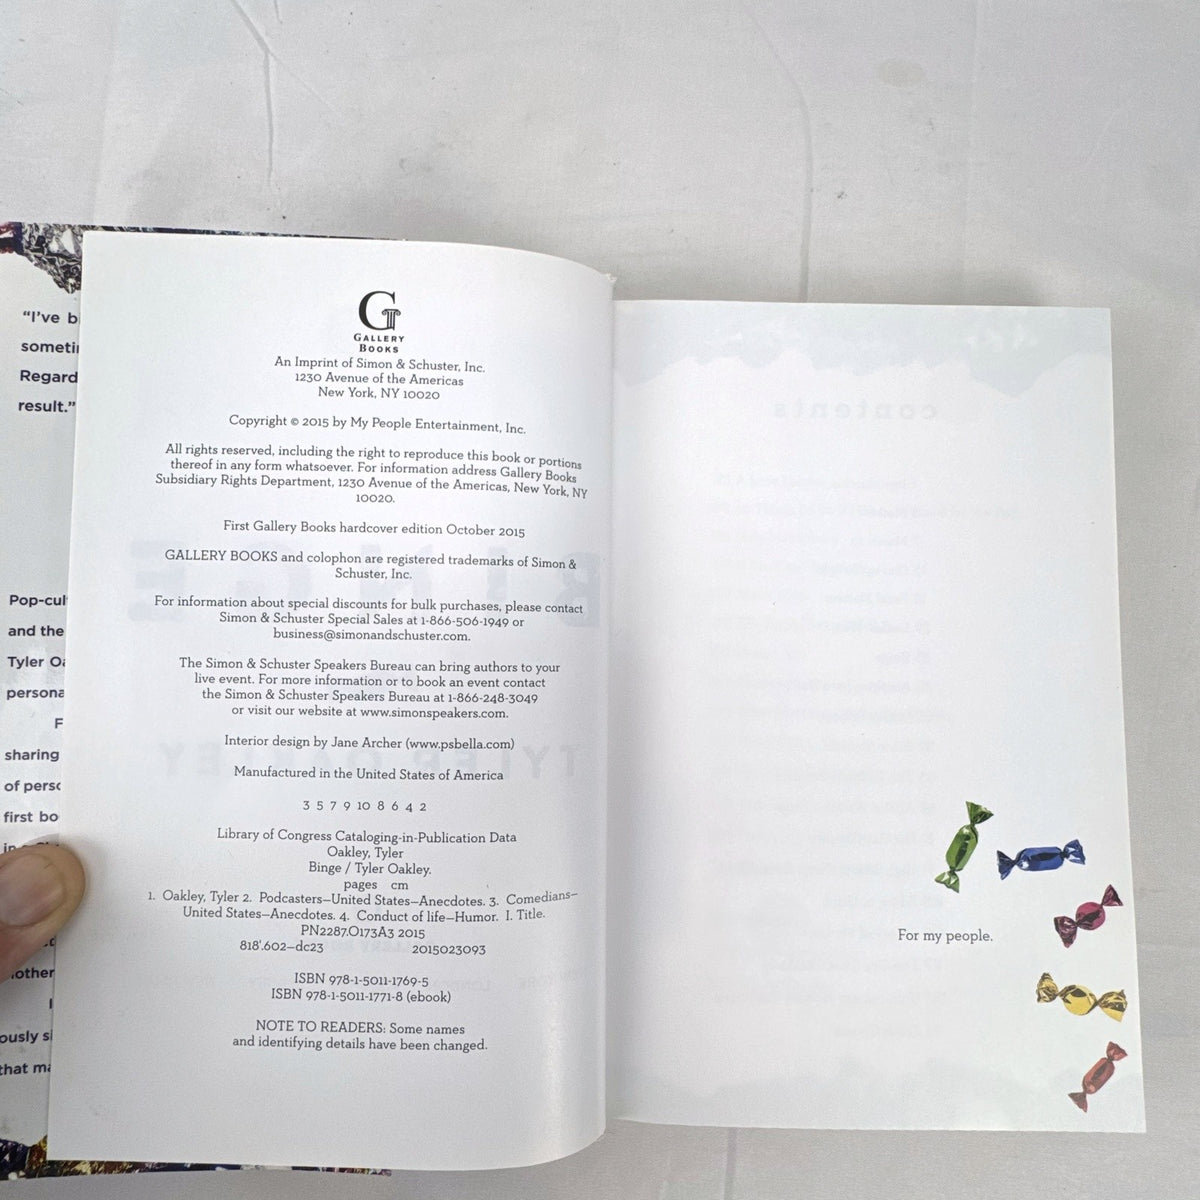 “I’ve b
someti
Regard
result.”
Pop-cul
and the
Tyler Oa
persona
F
sharing
of perso
first bo
other
I
ously si
that ma
G
GALLERY
BOOKS
An Imprint of Simon & Schuster, Inc.
1230 Avenue of the Americas
New York, NY 10020
Copyright © 2015 by My People Entertainment, Inc.
All rights reserved, including the right to reproduce this book or portions
thereof in any form whatsoever. For information address Gallery Books
Subsidiary Rights Department, 1230 Avenue of the Americas, New York, NY
10020.
First Gallery Books hardcover edition October 2015
GALLERY BOOKS and colophon are registered trademarks of Simon &
Schuster, Inc.
For information about special discounts for bulk purchases, please contact
Simon & Schuster Special Sales at 1-866-506-1949 or
business@simonandschuster.com.
The Simon & Schuster Speakers Bureau can bring authors to your
live event. For more information or to book an event contact
the Simon & Schuster Speakers Bureau at 1-866-248-3049
or visit our website at www.simonspeakers.com.
Interior design by Jane Archer (www.psbella.com)
Manufactured in the United States of America
3 5 7 9 10 8 6 4 2
Library of Congress Cataloging-in-Publication Data
Oakley, Tyler
Binge / Tyler Oakley.
pages cm
1. Oakley, Tyler 2. Podcasters—United States—Anecdotes. 3. Comedians—
United States—Anecdotes. 4. Conduct of life—Humor. I. Title.
PN2287.O173A3 2015
818'.602—dc23 2015023093
ISBN 978-1-5011-1769-5
ISBN 978-1-5011-1771-8 (ebook)
NOTE TO READERS: Some names
and identifying details have been changed.
For my people.